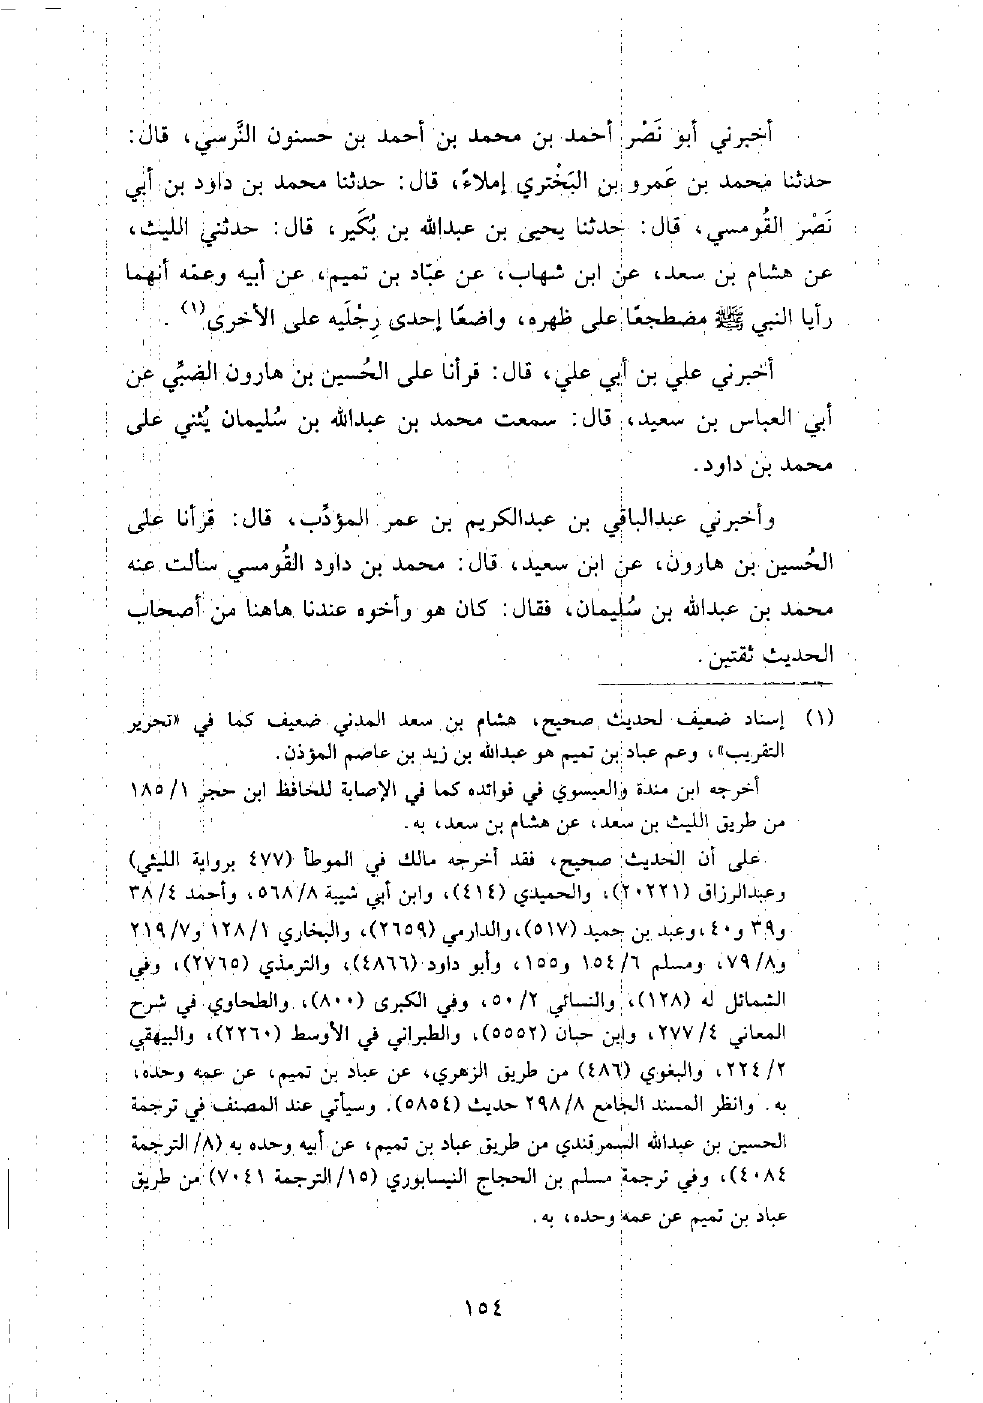 أخبرني أبو نَصْر أحمد بن محمد بن أحمد بن حسنون النَّرسي، قال:
حدثنا محمد بن عَمرو بن البَخْتري إملاءً، قال: حدثنا محمد بن داود بن أبي
نَصْر القُومسي، قال: حدثنا يحيى بن عبدالله بن بُكَير، قال: حدثني الليث،
عن هشام بن سعد، عن ابن شهاب، عن عبَّاد بن تميم، عن أبيه وعمّه أنهما
رأيا النبي ﷺ مضطجعًا على ظهره، واضعًا إحدى رِجْلَيه على الأخرى(١) .
أخبرني علي بن أبي علي، قال: قرأنا على الحُسين بن هارون الضبِّي عن
أبي العباس بن سعيد، قال: سمعت محمد بن عبدالله بن سُليمان يُثني على
محمد بن داود.
وأخبرني عبدالباقي بن عبدالكريم بن عمر المؤدِّب، قال: قرأنا على
الحُسين بن هارون، عن ابن سعيد، قال: محمد بن داود القُومسي سألت عنه
محمد بن عبدالله بن سُليمان، فقال: كان هو وأخوه عندنا هاهنا من أصحاب
الحديث ثقتين.
(١) إسناد ضعيف لحديث صحيح، هشام بن سعد المدني ضعيف كما في «تحرير
التقريب»، وعم عباد بن تميم هو عبدالله بن زيد بن عاصم المؤذن.
أخرجه ابن مندة والعيسوي في فوائده كما في الإصابة للحافظ ابن حجر ١/ ١٨٥
من طريق الليث بن سعد، عن هشام بن سعد، به.
على أن الحديث صحيح، فقد أخرجه مالك في الموطأ (٤٧٧ برواية الليثي)
وعبدالرزاق (٢٠٢٢١)، والحميدي (٤١٤)، وابن أبي شيبة ٨/ ٥٦٨، وأحمد ٤/ ٣٨
و٣٩ و٤٠، وعبد بن حميد (٥١٧)، والدارمي (٢٦٥٩)، والبخاري ١/ ١٢٨ و٧/ ٢١٩
و٨/ ٧٩، ومسلم ٦/ ١٥٤ و١٥٥، وأبو داود (٤٨٦٦)، والترمذي (٢٧٦٥)، وفي
الشمائل له (١٢٨)، والنسائي ٢/ ٥٠، وفي الكبرى (٨٠٠)، والطحاوي في شرح
المعاني ٤/ ٢٧٧، وابن حبان (٥٥٥٢)، والطبراني في الأوسط (٢٢٦٠)، والبيهقي
٢/ ٢٢٤، والبغوي (٤٨٦) من طريق الزهري، عن عباد بن تميم، عن عمه وحده،
به. وانظر المسند الجامع ٨/ ٢٩٨ حديث (٥٨٥٤). وسيأتي عند المصنف في ترجمة
الحسين بن عبدالله السمرقندي من طريق عباد بن تميم، عن أبيه وحده به (٨/ الترجمة
٤٠٨٤)، وفي ترجمة مسلم بن الحجاج النيسابوري (١٥/ الترجمة ٧٠٤١) من طريق
عباد بن تميم عن عمه وحده، به.
١٥٤